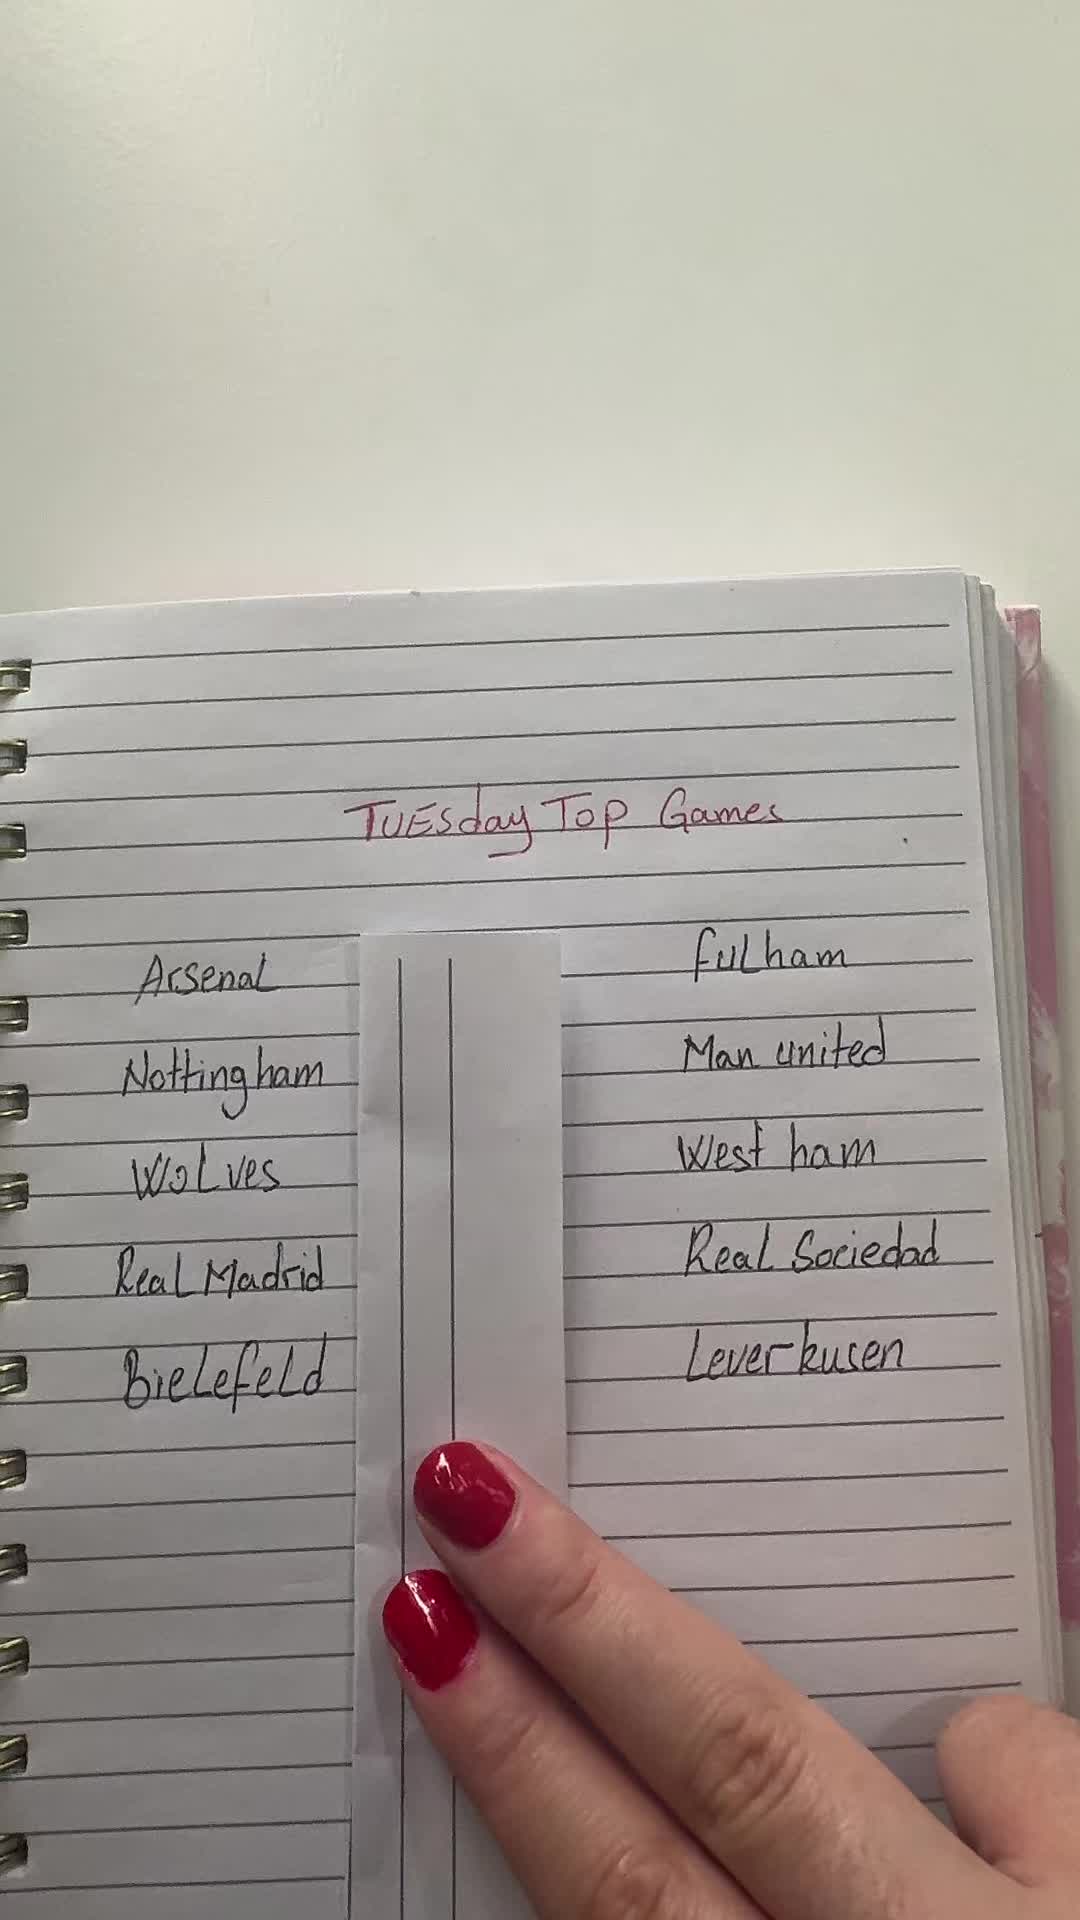 TUESday Top Games
Arsenal fulham
Nottingham Man united
Wolves West ham
Real Madrid Real Sociedad
Bielefeld Leverkusen